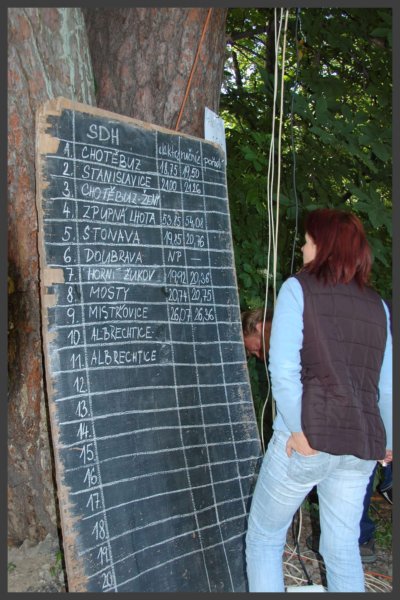 SDH elektronicky pořadí
1. CHOTĚBUZ 18.75 19.50
2. STANISLAVICE 21.00 21.36
3. CHOTĚBUZ-ŽENY
4. ZPUPNÁ LHOTA 53.75 54.08
5. ŠTONAVA 19.85 20.76
6. DOUBRAVA NP –
7. HORNÍ ŽUKOV 19,92 20,36
8. MOSTY 20,74 20,75
9. MISTŘOVICE 26,07 26,36
10. ALBRECHTICE
11. ALBRECHTICE
12.
13.
14.
15.
16.
17.
18.
19.
20.